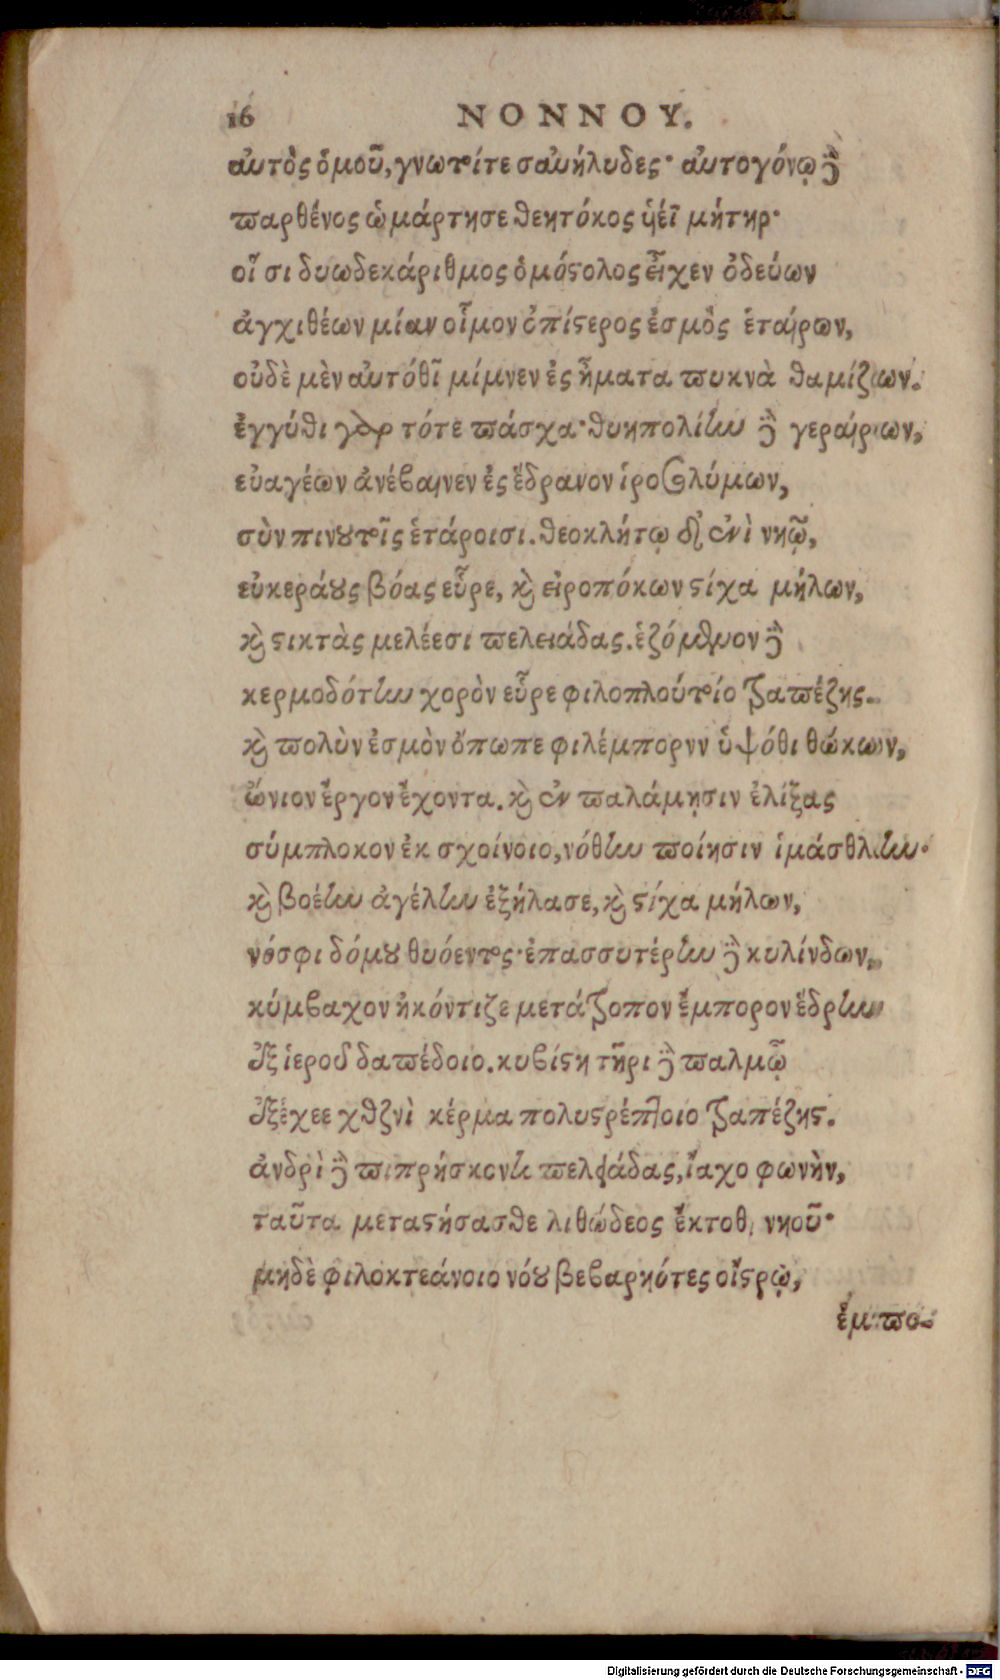 16 ΝΟΝΝΟΥ.
αὐτὸς ὁμοῦ, γνωτοί τε συνήλυδες· αὐτογόνῳ δὲ
παρθένος ὡμάρτησε θεητόκος ἠέϊ μήτηρ·
οἷσι δυωδεκάριθμος ὁμόστολος εἶχεν ὁδεύων
ἀγχιθέων μίαν οἶμον ὀπίστερος ἑσμὸς ἑταίρων,
οὐδὲ μὲν αὐτόθῑ μίμνεν ἐς ἤματα πυκνὰ θαμίζων.
ἐγγύθι γὰρ τότε πάσχα· θυηπολίην δὲ γεραίρων,
εὐαγέων ἀνέβαινεν ἐς ἕδρανον ἱροσολύμων,
σὺν πινυτοῖς ἑτάροισι. θεοκλήτῳ δ' ἐνὶ νηῷ,
εὐκεράους βόας εὗρε, καὶ εἰροπόκων στίχα μήλων,
καὶ στικτὰς μελέεσι πελειάδας. ἑζόμενον δὲ
κερμοδότην χορὸν εὗρε φιλοπλούτοιο τραπέζης.
καὶ πολὺν ἑσμὸν ὄπωπε φιλέμπορνν ὑψόθι θώκων,
ὤνιον ἔργον ἔχοντα. καὶ ἐν παλάμῃσιν ἑλίξας
σύμπλοκον ἐκ σχοίνοιο, νόθην ποίησιν ἱμάσθλην·
καὶ βοέην ἀγέλην ἐξήλασε, καὶ στίχα μήλων,
νόσφι δόμου θυόεντος· ἐπασσυτέρην δὲ κυλίνδων,
κύμβαχον ἠκόντιζε μετάτροπον ἔμπορον ἕδρην
ἐξ ἱεροῦ δαπέδοιο. κυβιστητῆρι δὲ παλμῷ
ἐξέχεε χθζνὶ κέρμα πολυστρέπτοιο τραπέζης.
ἀνδρὶ δὲ πιπρήσκοντι πελειάδας, ἴαχο φωνὴν,
ταῦτα μεταστήσασθε λιθώδεος ἔκτοθι νηοῦ·
μηδὲ φιλοκτεάνοιο νόου βεβαρηότες οἴστρῳ,
ἐμπο-
Digitalisierung gefördert durch die Deutsche Forschungsgemeinschaft - DFG